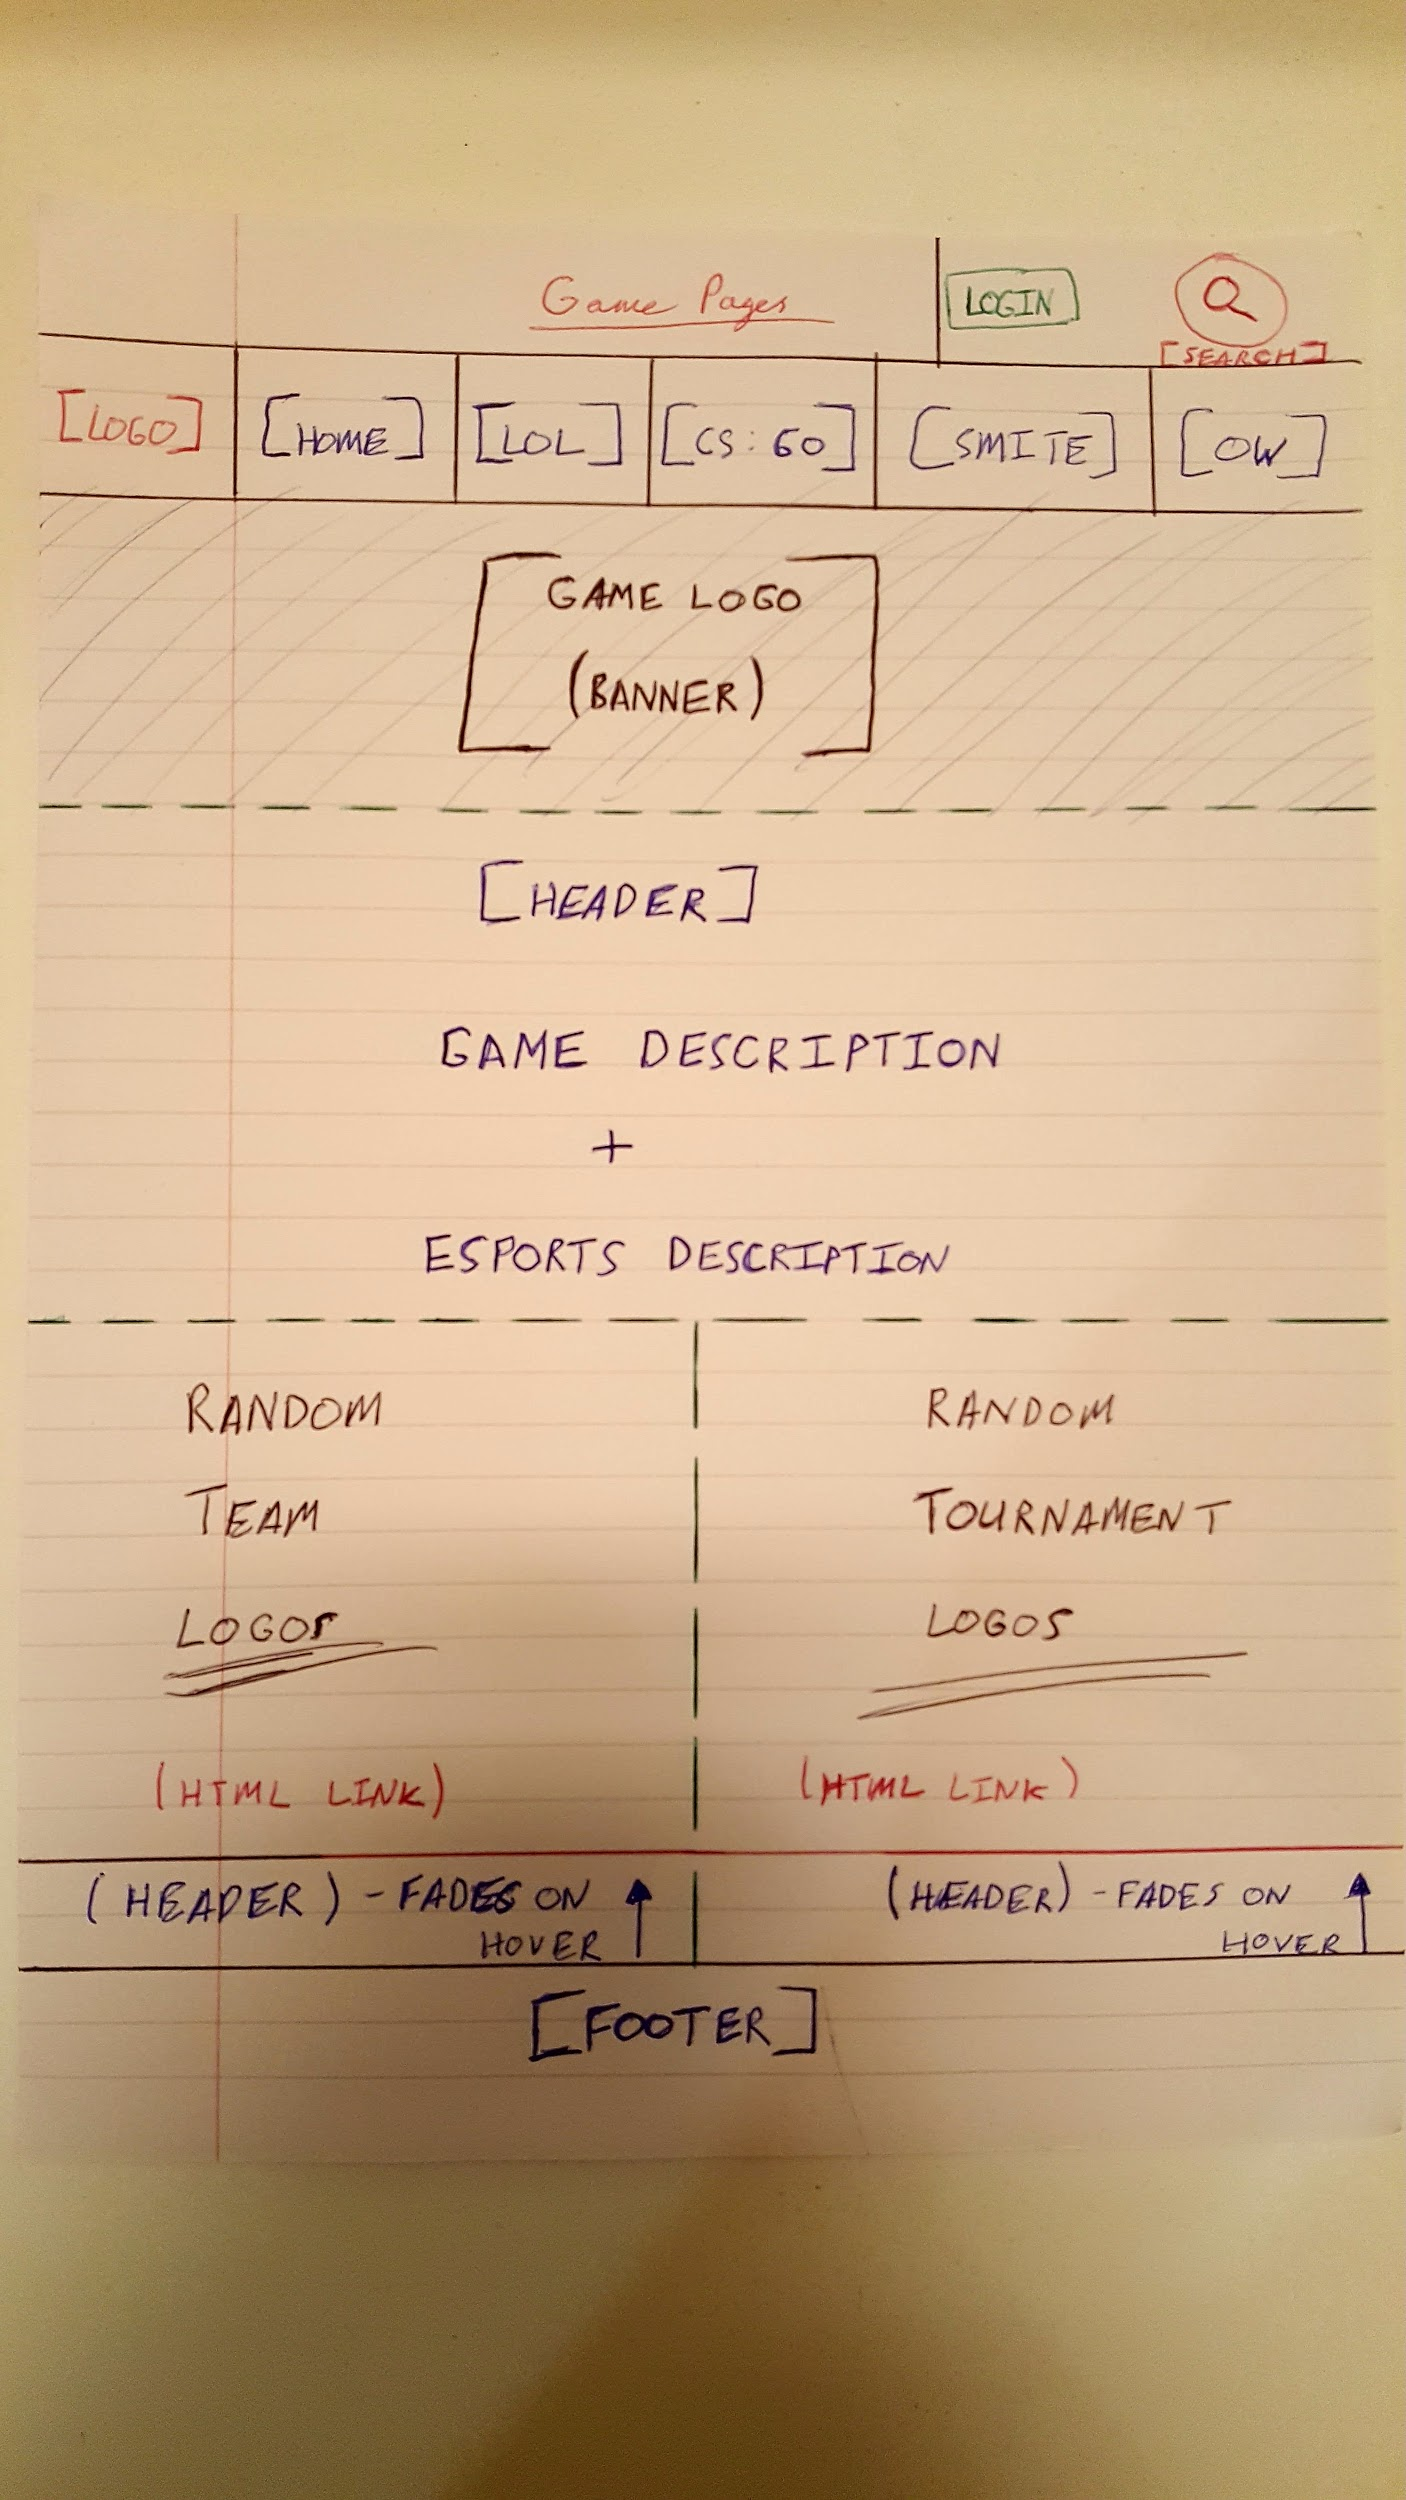 Game Pages
LOGIN
[SEARCH]
[LOGO] [HOME] [LOL] [CS:GO] [SMITE] [OW]
GAME LOGO
(BANNER)
[HEADER]
GAME DESCRIPTION
+
ESPORTS DESCRIPTION
RANDOM
TEAM
LOGOS
(HTML LINK)
RANDOM
TOURNAMENT
LOGOS
(HTML LINK)
(HEADER) - FADES ON
HOVER
(HEADER) - FADES ON
HOVER
[FOOTER]